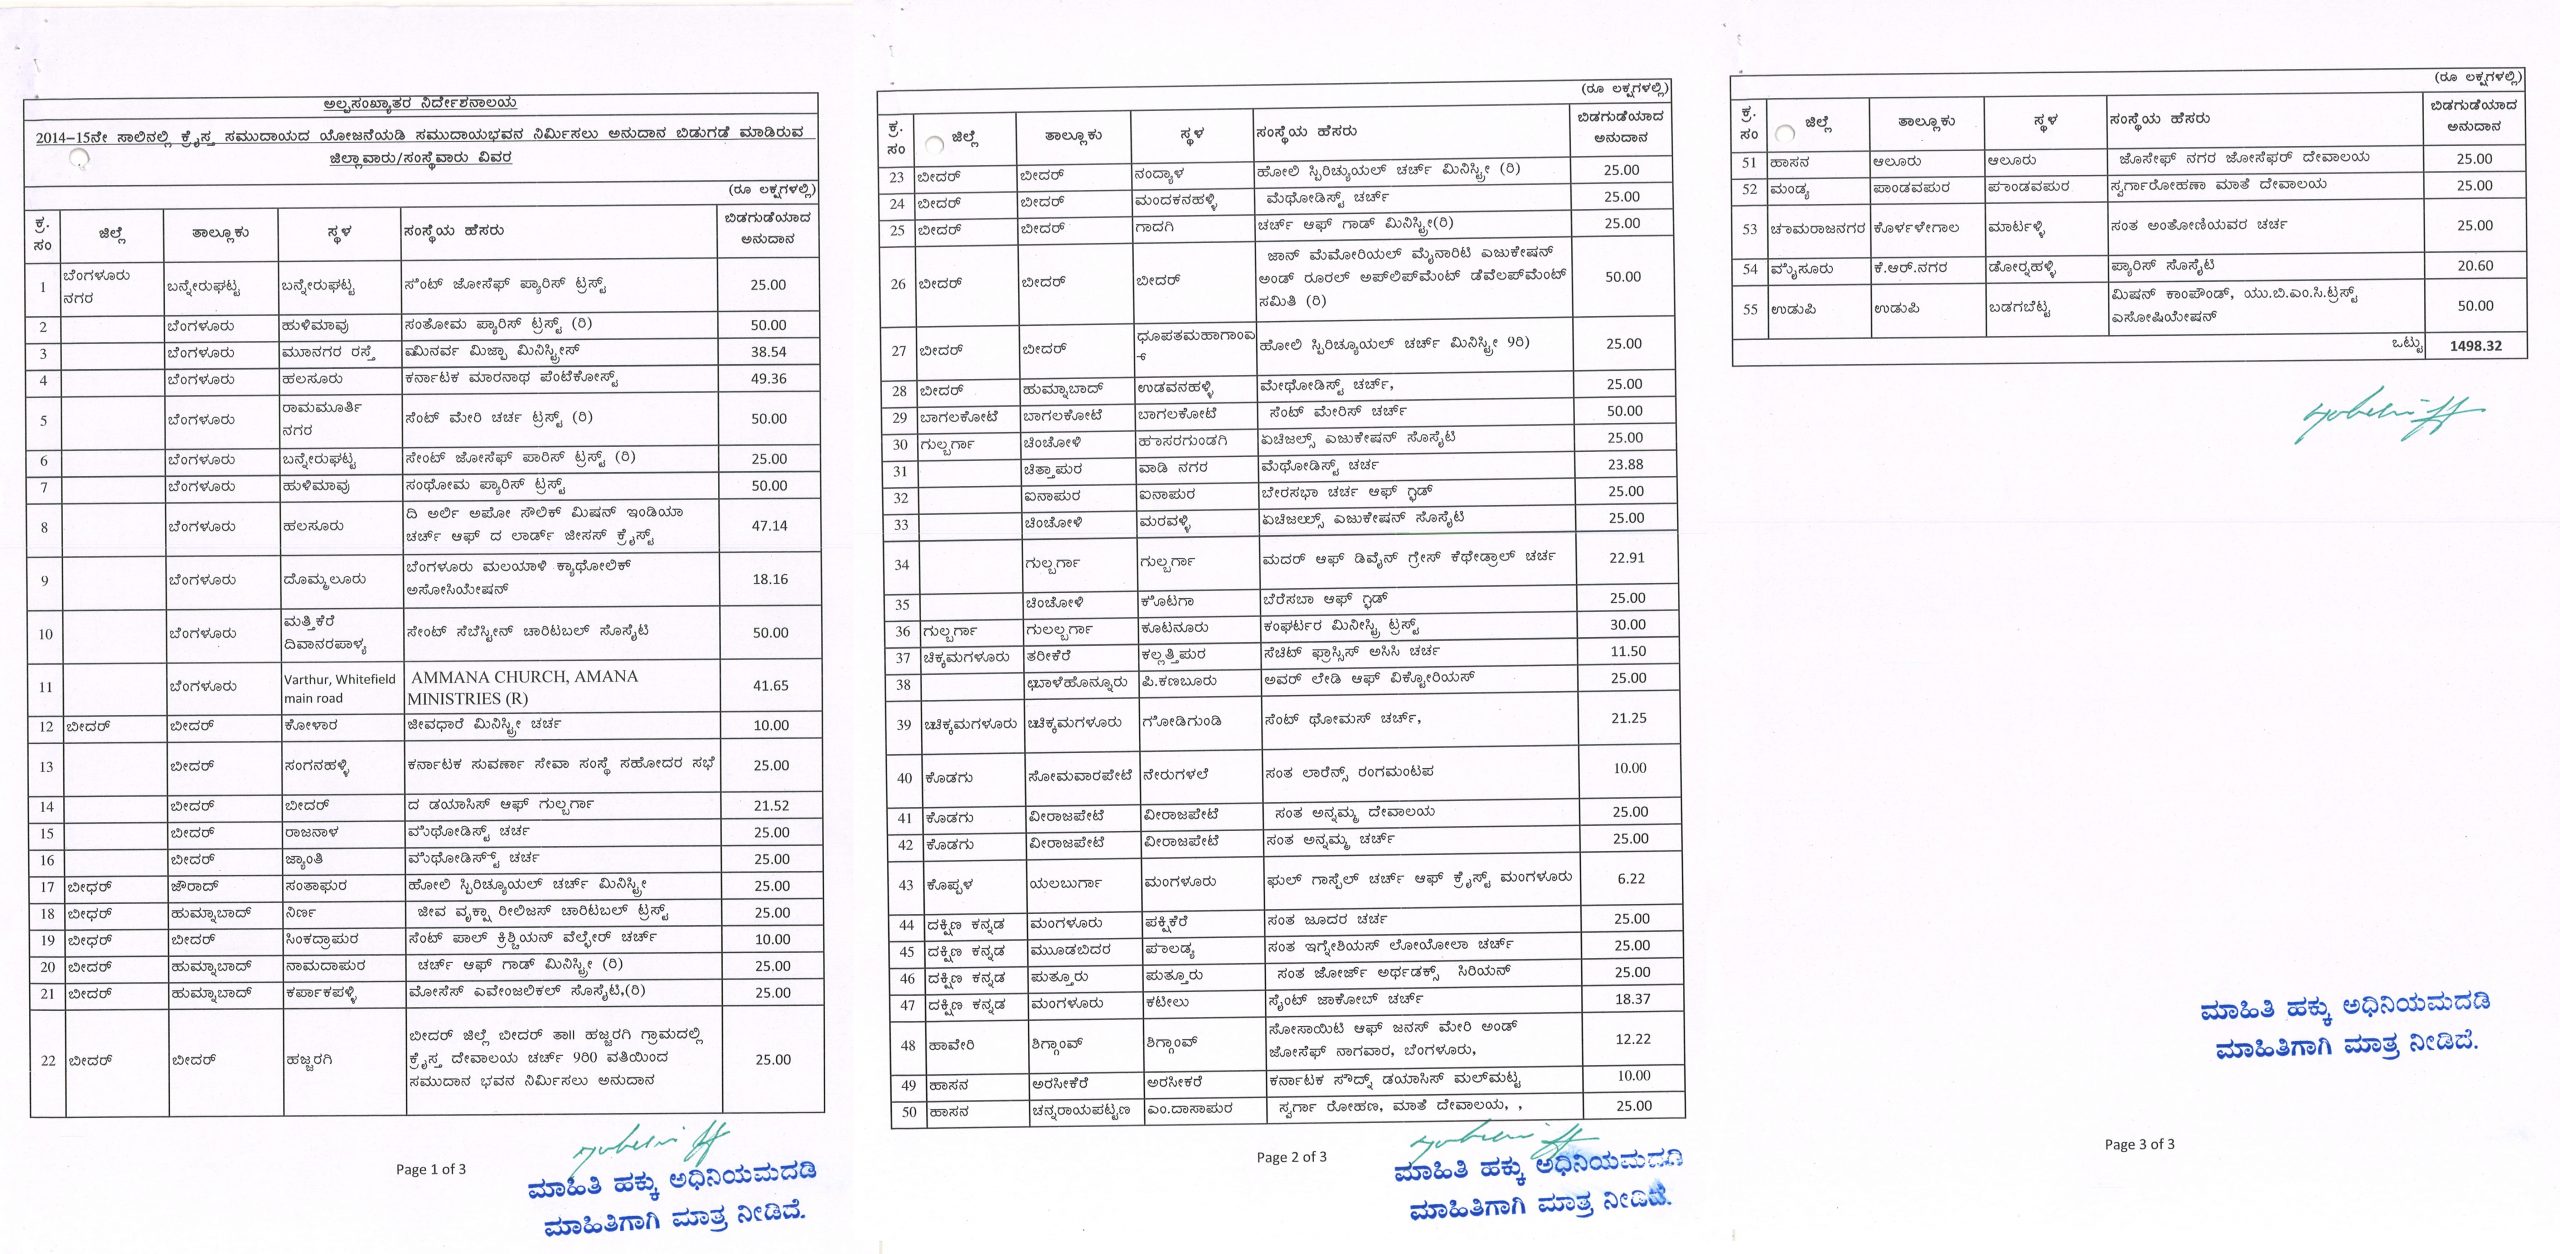 ಅಲ್ಪಸಂಖ್ಯಾತರ ನಿರ್ದೇಶನಾಲಯ
2014-15ನೇ ಸಾಲಿನಲ್ಲಿ ಕ್ರೈಸ್ತ ಸಮುದಾಯದ ಯೋಜನೆಯಡಿ ಸಮುದಾಯಭವನ ನಿರ್ಮಿಸಲು ಅನುದಾನ ಬಿಡುಗಡೆ ಮಾಡಿರುವ
ಜಿಲ್ಲಾವಾರು/ಸಂಸ್ಥೆವಾರು ವಿವರ
(ರೂ ಲಕ್ಷಗಳಲ್ಲಿ)
ಕ್ರ. ಸಂ ಜಿಲ್ಲೆ ತಾಲ್ಲೂಕು ಸ್ಥಳ ಸಂಸ್ಥೆಯ ಹೆಸರು ಬಿಡಗುಡೆಯಾದ ಅನುದಾನ
1 ಬೆಂಗಳೂರು ನಗರ ಬನ್ನೇರುಘಟ್ಟ ಬನ್ನೇರುಘಟ್ಟ ಸೆಂಟ್ ಜೋಸೆಫ್ ಪ್ಯಾರಿಸ್ ಟ್ರಸ್ಟ್ 25.00
2 ಬೆಂಗಳೂರು ಹುಳಿಮಾವು ಸಂತೋಮ ಪ್ಯಾರಿಸ್ ಟ್ರಸ್ಟ್ (ರಿ) 50.00
3 ಬೆಂಗಳೂರು ಮಾನಗರ ರಸ್ತೆ ಮಿನರ್ವ ಮಿಜ್ಪಾ ಮಿನಿಸ್ಟ್ರೀಸ್ 38.54
4 ಬೆಂಗಳೂರು ಹಲಸೂರು ಕರ್ನಾಟಕ ಮಾರನಾಥ ಪೆಂಟೆಕೋಸ್ಟ್ 49.36
5 ಬೆಂಗಳೂರು ರಾಮಮೂರ್ತಿ ನಗರ ಸೆಂಟ್ ಮೇರಿ ಚರ್ಚ ಟ್ರಸ್ಟ್ (ರಿ) 50.00
6 ಬೆಂಗಳೂರು ಬನ್ನೇರುಘಟ್ಟ ಸೇಂಟ್ ಜೋಸೆಫ್ ಪಾರಿಸ್ ಟ್ರಸ್ಟ್ (ರಿ) 25.00
7 ಬೆಂಗಳೂರು ಹುಳಿಮಾವು ಸಂಥೋಮ ಪ್ಯಾರಿಸ್ ಟ್ರಸ್ಟ್ 50.00
8 ಬೆಂಗಳೂರು ಹಲಸೂರು ದಿ ಅರ್ಲಿ ಅಪೋ ಸೌಲಿಕ್ ಮಿಷನ್ ಇಂಡಿಯಾ
ಚರ್ಚ್ ಆಫ್ ದ ಲಾರ್ಡ್ ಜೀಸಸ್ ಕ್ರೈಸ್ಟ್ 47.14
9 ಬೆಂಗಳೂರು ದೊಮ್ಮಲೂರು ಬೆಂಗಳೂರು ಮಲಯಾಳಿ ಕ್ಯಾಥೋಲಿಕ್
ಅಸೋಸಿಯೇಷನ್ 18.16
10 ಬೆಂಗಳೂರು ಮತ್ತಿಕೆರೆ ದಿವಾನರಪಾಳ್ಯ ಸೇಂಟ್ ಸೆಬೆಸ್ಟೀನ್ ಚಾರಿಟಬಲ್ ಸೊಸೈಟಿ 50.00
11 ಬೆಂಗಳೂರು Varthur, Whitefield main road AMMANA CHURCH, AMANA
MINISTRIES (R) 41.65
12 ಬೀದರ್ ಬೀದರ್ ಕೋಳಾರ ಜೀವಧಾರೆ ಮಿನಿಸ್ಟ್ರೀ ಚರ್ಚ 10.00
13 ಬೀದರ್ ಸಂಗನಹಳ್ಳಿ ಕರ್ನಾಟಕ ಸುವರ್ಣಾ ಸೇವಾ ಸಂಸ್ಥೆ ಸಹೋದರ ಸಭೆ 25.00
14 ಬೀದರ್ ಬೀದರ್ ದ ಡಯಾಸಿಸ್ ಆಫ್ ಗುಲ್ಬರ್ಗಾ 21.52
15 ಬೀದರ್ ರಾಜನಾಳ ಮೆಥೋಡಿಸ್ಟ್ ಚರ್ಚ 25.00
16 ಬೀದರ್ ಜ್ಯಾಂತಿ ಮೆಥೋಡಿಸ್ಟ್ ಚರ್ಚ 25.00
17 ಬೀಧರ್ ಜೌರಾದ್ ಸಂತಾಘರ ಹೋಲಿ ಸ್ಪಿರಿಚ್ಯೂಯಲ್ ಚರ್ಚ್ ಮಿನಿಸ್ಟ್ರೀ 25.00
18 ಬೀಧರ್ ಹುಮ್ನಾಬಾದ್ ನಿರ್ಣ ಜೀವ ವೃಕ್ಷಾ ರೀಲಿಜಸ್ ಚಾರಿಟಬಲ್ ಟ್ರಸ್ಟ್ 25.00
19 ಬೀಧರ್ ಬೀದರ್ ಸಿಂಕದ್ರಾಪುರ ಸೆಂಟ್ ಪಾಲ್ ಕ್ರಿಶ್ಚಿಯನ್ ವೆಲ್ಫೇರ್ ಚರ್ಚ್ 10.00
20 ಬೀದರ್ ಹುಮ್ನಾಬಾದ್ ನಾಮದಾಪುರ ಚರ್ಚ್ ಆಫ್ ಗಾಡ್ ಮಿನಿಸ್ಟ್ರೀ (ರಿ) 25.00
21 ಬೀದರ್ ಹುಮ್ನಾಬಾದ್ ಕರ್ಪಾಕಪಳ್ಳಿ ಮೋಸೆಸ್ ಎವೇಂಜಲಿಕಲ್ ಸೊಸೈಟಿ,(ರಿ) 25.00
22 ಬೀದರ್ ಬೀದರ್ ಹಜ್ಜರಗಿ ಬೀದರ್ ಜಿಲ್ಲೆ ಬೀದರ್ ತಾ|| ಹಜ್ಜರಗಿ ಗ್ರಾಮದಲ್ಲಿ
ಕ್ರೈಸ್ತ ದೇವಾಲಯ ಚರ್ಚ್ 9ರಿ0 ವತಿಯಿಂದ
ಸಮುದಾನ ಭವನ ನಿರ್ಮಿಸಲು ಅನುದಾನ 25.00
Page 1 of 3
ಮಾಹಿತಿ ಹಕ್ಕು ಅಧಿನಿಯಮದಡಿ
ಮಾಹಿತಿಗಾಗಿ ಮಾತ್ರ ನೀಡಿದೆ.
(ರೂ ಲಕ್ಷಗಳಲ್ಲಿ)
ಕ್ರ. ಸಂ ಜಿಲ್ಲೆ ತಾಲ್ಲೂಕು ಸ್ಥಳ ಸಂಸ್ಥೆಯ ಹೆಸರು ಬಿಡಗುಡೆಯಾದ ಅನುದಾನ
23 ಬೀದರ್ ಬೀದರ್ ನಂದ್ಯಾಳ ಹೋಲಿ ಸ್ಪಿರಿಚ್ಯುಯಲ್ ಚರ್ಚ್ ಮಿನಿಸ್ಟ್ರೀ (ರಿ) 25.00
24 ಬೀದರ್ ಬೀದರ್ ಮಂದಕನಹಳ್ಳಿ ಮೆಥೋಡಿಸ್ಟ್ ಚರ್ಚ್ 25.00
25 ಬೀದರ್ ಬೀದರ್ ಗಾದಗಿ ಚರ್ಚ್ ಆಫ್ ಗಾಡ್ ಮಿನಿಸ್ಟ್ರೀ(ರಿ) 25.00
26 ಬೀದರ್ ಬೀದರ್ ಬೀದರ್ ಜಾನ್ ಮೆಮೋರಿಯಲ್ ಮೈನಾರಿಟಿ ಎಜುಕೇಷನ್
ಅಂಡ್ ರೂರಲ್ ಅಪ್‌ಲಿಪ್‌ಮೆಂಟ್ ಡೆವೆಲಪ್‌ಮೆಂಟ್
ಸಮಿತಿ (ರಿ) 50.00
27 ಬೀದರ್ ಬೀದರ್ ಹೋಲಿ ಸ್ಪಿರಿಚ್ಯೂಯಲ್ ಚರ್ಚ್ ಮಿನಿಸ್ಟ್ರೀ 9ರಿ) 25.00
28 ಬೀದರ್ ಹುಮ್ನಾಬಾದ್ ಉಡವನಹಳ್ಳಿ ಮೇಥೋಡಿಸ್ಟ್ ಚರ್ಚ್, 25.00
29 ಬಾಗಲಕೋಟೆ ಬಾಗಲಕೋಟೆ ಬಾಗಲಕೋಟೆ ಸೆಂಟ್ ಮೇರಿಸ್ ಚರ್ಚ್ 50.00
30 ಗುಲ್ಬರ್ಗಾ ಚಿಂಚೋಳಿ ಹಾಸರಗುಂಡಗಿ ಏಚಿಜಲ್ಸ್ ಎಜುಕೇಷನ್ ಸೊಸೈಟಿ 25.00
31 ಚಿತ್ತಾಪುರ ವಾಡಿ ನಗರ ಮೆಥೋಡಿಸ್ಟ್ ಚರ್ಚ 23.88
32 ಐನಾಪುರ ಐನಾಪುರ ಬೇರಸಭಾ ಚರ್ಚ ಆಫ್ ಗ್ಭಡ್ 25.00
33 ಚಿಂಚೋಳಿ ಮರವಳ್ಳಿ ಏಚಿಜಲ್ಸ್ ಎಜುಕೇಷನ್ ಸೊಸೈಟಿ 25.00
34 ಗುಲ್ಬರ್ಗಾ ಗುಲ್ಬರ್ಗಾ ಮದರ್ ಆಫ್ ಡಿವೈನ್ ಗ್ರೇಸ್ ಕೆಥೇಡ್ರಾಲ್ ಚರ್ಚ 22.91
35 ಚಿಂಚೋಳಿ ಕೊಟಗಾ ಬೆರೆಸಬಾ ಆಫ್ ಗ್ಭಡ್ 25.00
36 ಗುಲ್ಬರ್ಗಾ ಗುಲಲ್ಬರ್ಗಾ ಕೂಟನೂರು ಕಂಘರ್ಟರ ಮಿನೀಸ್ಟ್ರಿ ಟ್ರಸ್ಟ್ 30.00
37 ಚಿಕ್ಕಮಗಳೂರು ತರೀಕೆರೆ ಕಲ್ಲತ್ತಿಪುರ ಸೆಚಿಟ್ ಫ್ರಾನ್ಸಿಸ್ ಅಸಿಸಿ ಚರ್ಚ 11.50
38 ಬಾಳೆಹೊನ್ನೂರು ಪಿ.ಕಣಬೂರು ಅವರ್ ಲೇಡಿ ಆಫ್ ವಿಕ್ಟೋರಿಯಸ್ 25.00
39 ಚಿಕ್ಕಮಗಳೂರು ಚಿಕ್ಕಮಗಳೂರು ಗೋಡಿಗುಂಡಿ ಸೆಂಟ್ ಥೋಮಸ್ ಚರ್ಚ್, 21.25
40 ಕೊಡಗು ಸೋಮವಾರಪೇಟೆ ನೇರುಗಳಲೆ ಸಂತ ಲಾರೆನ್ಸ್ ರಂಗಮಂಟಪ 10.00
41 ಕೊಡಗು ವೀರಾಜಪೇಟೆ ವೀರಾಜಪೇಟೆ ಸಂತ ಅನ್ನಮ್ಮ ದೇವಾಲಯ 25.00
42 ಕೊಡಗು ವೀರಾಜಪೇಟೆ ವೀರಾಜಪೇಟೆ ಸಂತ ಅನ್ನಮ್ಮ ಚರ್ಚ್ 25.00
43 ಕೊಪ್ಪಳ ಯಲಬುರ್ಗಾ ಮಂಗಳೂರು ಫುಲ್ ಗಾಸ್ಪೆಲ್ ಚರ್ಚ್ ಆಫ್ ಕ್ರೈಸ್ಟ್ ಮಂಗಳೂರು 6.22
44 ದಕ್ಷಿಣ ಕನ್ನಡ ಮಂಗಳೂರು ಪಕ್ಷಿಕೆರೆ ಸಂತ ಜೂದರ ಚರ್ಚ 25.00
45 ದಕ್ಷಿಣ ಕನ್ನಡ ಮೂಡಬಿದರ ಪಾಲಡ್ಯ ಸಂತ ಇಗ್ನೇಶಿಯಸ್ ಲೋಯೋಲಾ ಚರ್ಚ್ 25.00
46 ದಕ್ಷಿಣ ಕನ್ನಡ ಪುತ್ತೂರು ಪುತ್ತೂರು ಸಂತ ಜೋರ್ಜ್ ಅರ್ಥಡಕ್ಸ್ ಸಿರಿಯನ್ 25.00
47 ದಕ್ಷಿಣ ಕನ್ನಡ ಮಂಗಳೂರು ಕಟೀಲು ಸೈಂಟ್ ಜಾಕೋಬ್ ಚರ್ಚ್ 18.37
48 ಹಾವೇರಿ ಶಿಗ್ಗಾಂವ್ ಶಿಗ್ಗಾಂವ್ ಸೋಸಾಯಿಟಿ ಆಫ್ ಜನಸ್ ಮೇರಿ ಅಂಡ್
ಜೋಸೆಫ್ ನಾಗವಾರ, ಬೆಂಗಳೂರು, 12.22
49 ಹಾಸನ ಅರಸೀಕೆರೆ ಅರಸೀಕರೆ ಕರ್ನಾಟಕ ಸೌದ್ರ್ನ್ ಡಯಾಸಿಸ್ ಮಲ್‌ಮಟ್ಟ 10.00
50 ಹಾಸನ ಚನ್ನರಾಯಪಟ್ಟಣ ಎಂ.ದಾಸಾಪುರ ಸ್ವರ್ಗಾ ರೋಹಣ, ಮಾತೆ ದೇವಾಲಯ, , 25.00
Page 2 of 3
ಮಾಹಿತಿ ಹಕ್ಕು ಅಧಿನಿಯಮದಡಿ
ಮಾಹಿತಿಗಾಗಿ ಮಾತ್ರ ನೀಡಿದೆ.
(ರೂ ಲಕ್ಷಗಳಲ್ಲಿ)
ಕ್ರ. ಸಂ ಜಿಲ್ಲೆ ತಾಲ್ಲೂಕು ಸ್ಥಳ ಸಂಸ್ಥೆಯ ಹೆಸರು ಬಿಡಗುಡೆಯಾದ ಅನುದಾನ
51 ಹಾಸನ ಆಲೂರು ಆಲೂರು ಜೊಸೇಫ್ ನಗರ ಜೋಸೆಫರ್ ದೇವಾಲಯ 25.00
52 ಮಂಡ್ಯ ಪಾಂಡವಪುರ ಪಾಂಡವಪುರ ಸ್ವರ್ಗಾರೋಹಣಾ ಮಾತೆ ದೇವಾಲಯ 25.00
53 ಚಾಮರಾಜನಗರ ಕೊರ್ಳಳೇಗಾಲ ಮಾರ್ಟಳ್ಳಿ ಸಂತ ಅಂತೋಣಿಯವರ ಚರ್ಚ 25.00
54 ಮೈಸೂರು ಕೆ.ಆರ್.ನಗರ ಡೋರ್‍ನಹಳ್ಳಿ ಪ್ಯಾರಿಸ್ ಸೊಸೈಟಿ 20.60
55 ಉಡುಪಿ ಉಡುಪಿ ಬಡಗಬೆಟ್ಟ ಮಿಷನ್ ಕಾಂಪೌಂಡ್, ಯು.ಬಿ.ಎಂ.ಸಿ.ಟ್ರಸ್ಟ್
ಎಸೋಷಿಯೇಷನ್ 50.00
ಒಟ್ಟು 1498.32
ಮಾಹಿತಿ ಹಕ್ಕು ಅಧಿನಿಯಮದಡಿ
ಮಾಹಿತಿಗಾಗಿ ಮಾತ್ರ ನೀಡಿದೆ.
Page 3 of 3